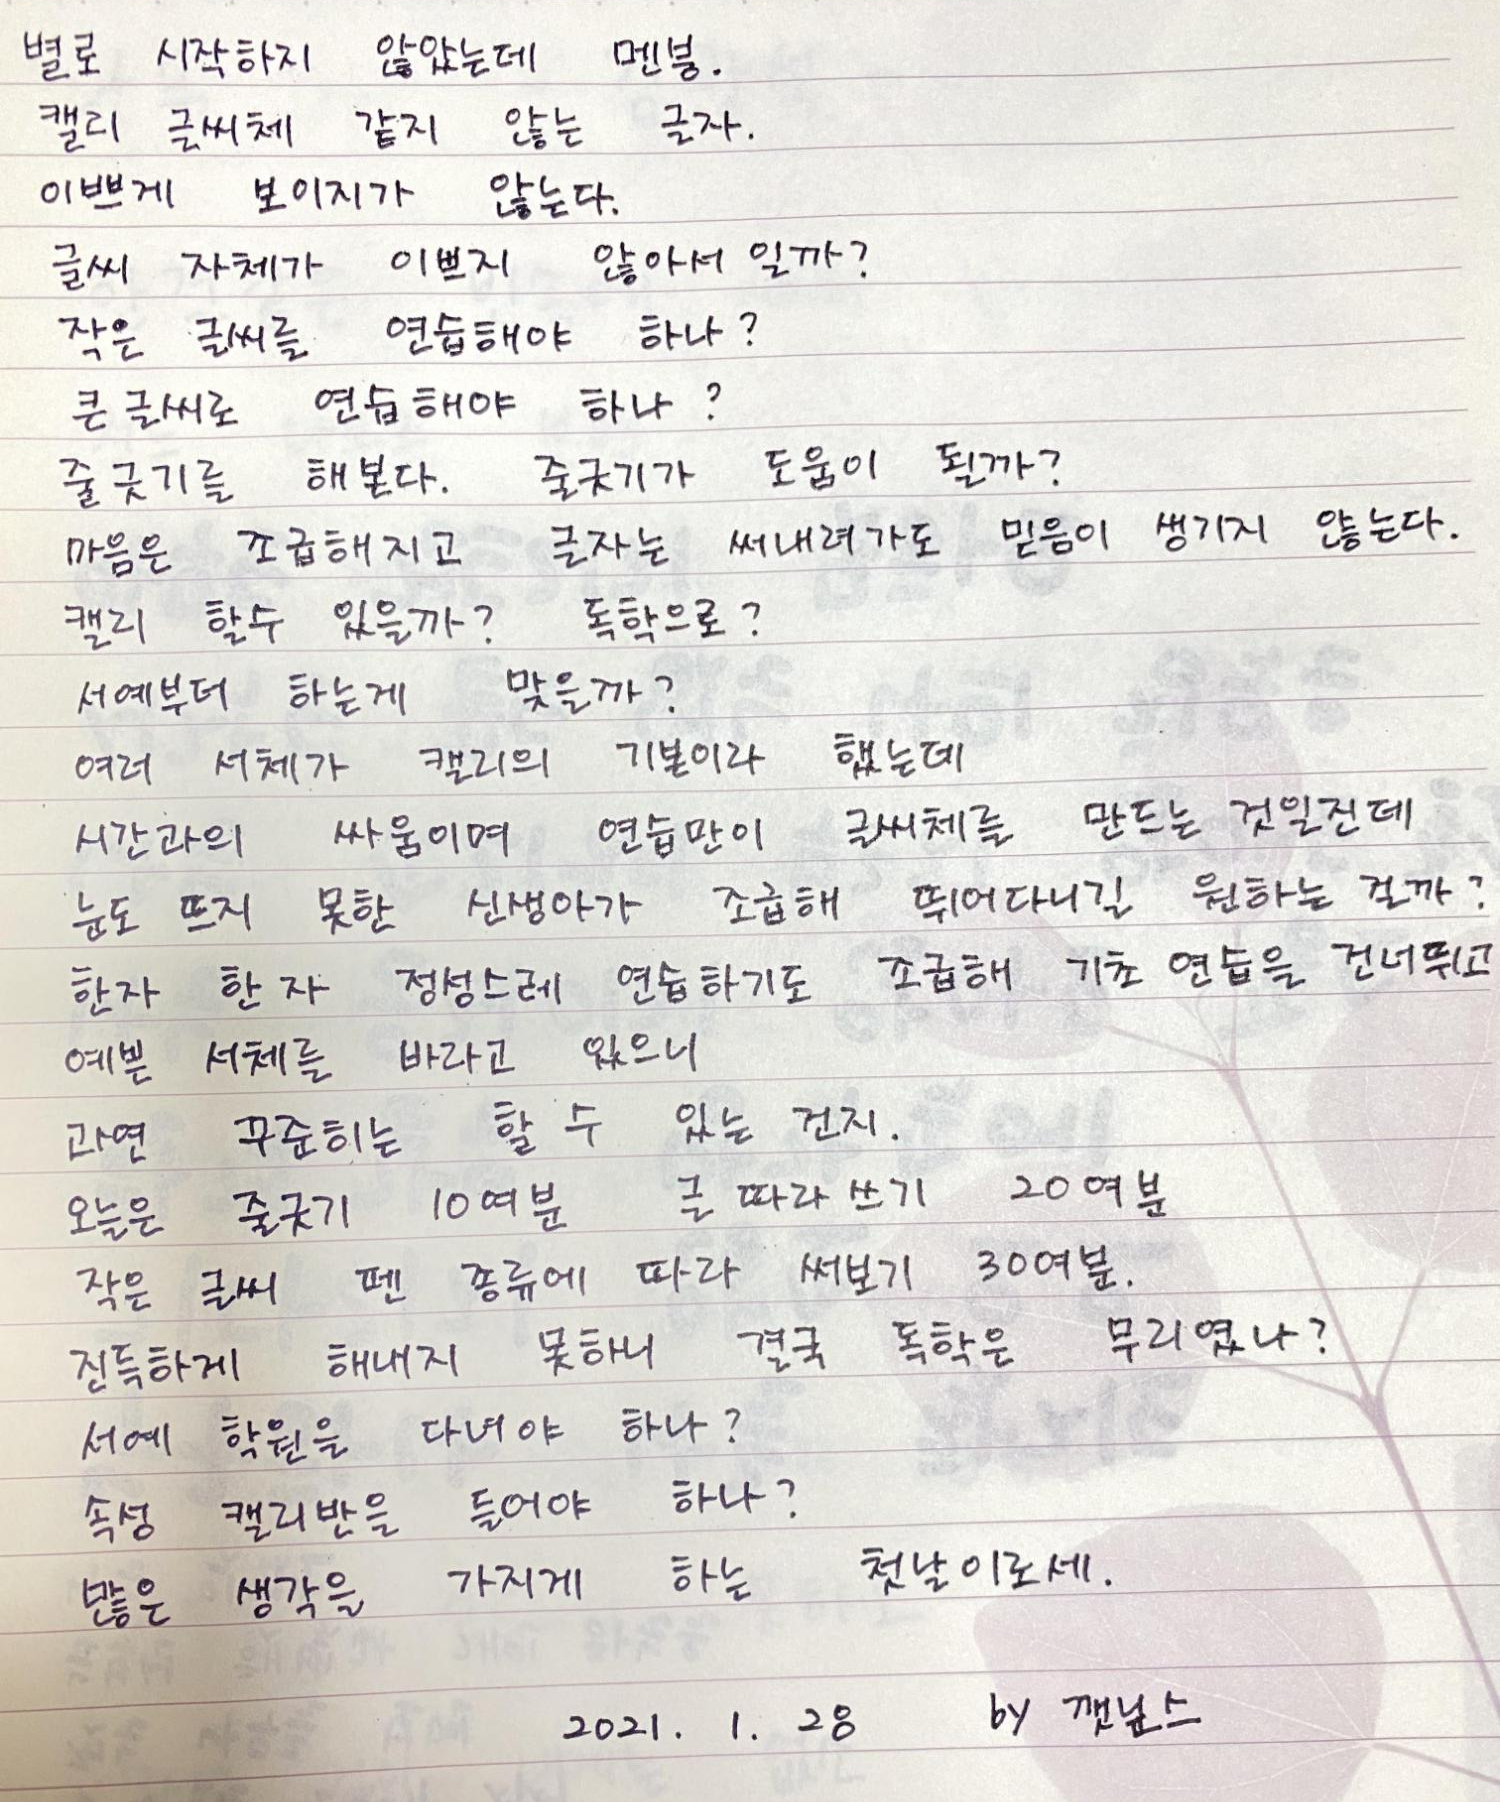 별로 시작하지 않았는데 멘붕.
캘리 글씨체 같지 않는 글자.
이쁘게 보이지가 않는다.
글씨 자체가 이쁘지 않아서 일까?
작은 글씨를 연습해야 하나?
큰 글씨로 연습해야 하나?
줄긋기를 해본다. 줄긋기가 도움이 될까?
마음은 조급해지고 글자는 써내려가도 믿음이 생기지 않는다.
캘리 할수 있을까? 독학으로?
서예부터 하는게 맞을까?
여러 서체가 캘리의 기본이라 했는데
시간과의 싸움이며 연습만이 글씨체를 만드는 것일진데
눈도 뜨지 못한 신생아가 조급해 뛰어다니길 원하는 걸까?
한자 한 자 정성스레 연습하기도 조급해 기초 연습을 건너뛰고
예쁜 서체를 바라고 있으니
과연 꾸준히는 할 수 있는 건지.
오늘은 줄긋기 10여분 글 따라 쓰기 20여분
작은 글씨 펜 종류에 따라 써보기 30여분.
진득하게 해내지 못하니 결국 독학은 무리였나?
서예 학원을 다녀야 하나?
속성 캘리반을 들어야 하나?
많은 생각을 가지게 하는 첫날이로세.
2021. 1. 28 by